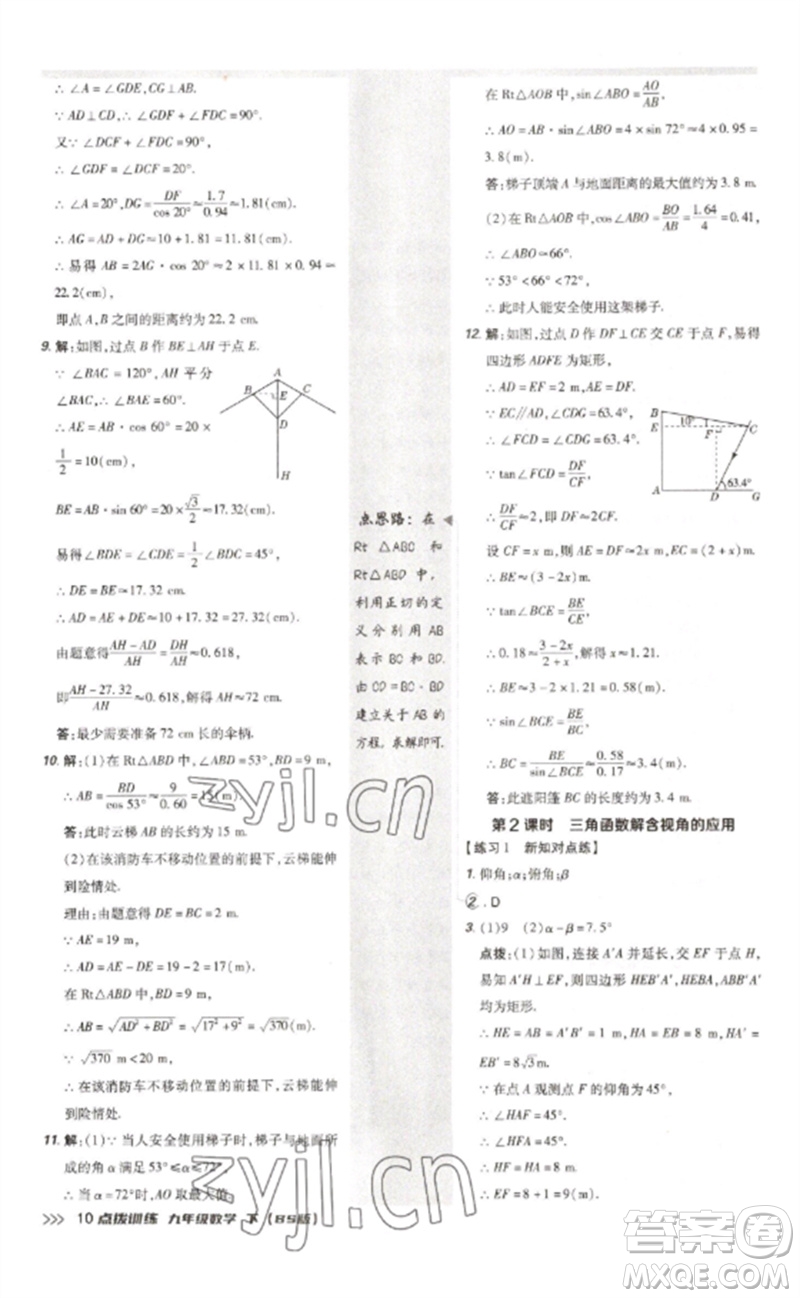 ∴ ∠A = ∠GDE, CG ⊥ AB.
∵ AD⊥CD, ∴ ∠GDF + ∠FDC = 90°.
又∵ ∠DCF + ∠FDC = 90°,
∴ ∠GDF = ∠DCF = 20°.
∴ ∠A = 20°, DG = DF/cos 20° ≈ 1.7/0.94 ≈ 1.81(cm).
∴ AG = AD + DG ≈ 10 + 1.81 = 11.81(cm).
∴ 易得 AB = 2AG · cos 20° ≈ 2 × 11.81 × 0.94 ≈
22.2(cm),
即点 A,B 之间的距离约为 22.2 cm.
9. 解:如图,过点 B 作 BE⊥AH 于点 E.
∵ ∠BAC = 120°, AH 平分
∠BAC, ∴ ∠BAE = 60°.
∴ AE = AB · cos 60° = 20 ×
1/2 = 10(cm),
BE = AB · sin 60° = 20 × √3/2 ≈ 17.32(cm).
易得 ∠BDE = ∠CDE = 45°,
∴ DE = BE ≈ 17.32 cm.
∴ AD = AE + DE ≈ 10 + 17.32 = 27.32(cm).
由题意得 (AH − AD)/AH = DH/AH ≈ 0.618,
即 (AH − 27.32)/AH ≈ 0.618, 解得 AH ≈ 72(cm).
答:最少需要准备 72 cm 长的伞柄.
10. 解:(1)在 Rt△ABD 中, ∠ABD = 53°, BD = 9 m,
∴ AB = BD/cos 53° ≈ 9/0.60 = 15(m).
答:此时云梯 AB 的长约为 15 m.
(2)在该消防车不移动位置的前提下,云梯能伸
到险情处.
理由:由题意得 DE = BC = 2 m.
∵ AE = 19 m,
∴ AD = AE − DE = 19 − 2 = 17(m).
在 Rt△ABD 中, BD = 9 m,
∴ AB = √(AD² + BD²) = √(17² + 9²) = √370 (m).
∵ √370 m < 20 m,
∴ 在该消防车不移动位置的前提下,云梯能伸到
险情处.
11. 解:(1)∵ 当人安全使用梯子时,梯子与地面所
成的角 α 满足 53° ≤ α ≤ 72°,
∴ 当 α = 72° 时, AO 取最大值.
>>> 10 点拨训练 九年级数学 下 (BS版)
A
B
C
E
D
H
点思路: 在
Rt △ABC 和
Rt△ABD 中,
利用正切的定
义分别用 AB
表示 BC 和 BD.
由 CD = BC − BD
建立关于 AB 的
方程, 求解即可.
在 Rt△AOB 中, sin∠ABO = AO/AB,
∴ AO = AB · sin∠ABO = 4 × sin 72° ≈ 4 × 0.95 =
3.8(m).
答:梯子顶端 A 与地面距离的最大值约为 3.8 m.
(2)在 Rt△AOB 中, cos∠ABO = BO/AB = 1.64/4 = 0.41,
∴ ∠ABO ≈ 66°.
∵ 53° < 66° < 72°,
∴ 此时人能安全使用这架梯子.
12. 解:如图,过点 D 作 DF⊥CE 交 CE 于点 F,易得
四边形 ADFE 为矩形,
∴ AD = EF = 2 m, AE = DF.
∵ EC∥AD, ∠CDG = 63.4°,
∴ ∠FCD = ∠CDG = 63.4°.
∵ tan∠FCD = DF/CF,
∴ DF/CF ≈ 2, 即 DF ≈ 2CF.
设 CF = x m, 则 DF ≈ 2x m.
∴ BE ≈ (3 − 2x) m.
∵ tan∠BCE = BE/CE,
∴ 0.18 ≈ (3 − 2x)/(2 + x), 解得 x ≈ 1.21.
∴ BE ≈ 3 − 2 × 1.21 = 0.58(m).
∵ sin∠BCE = BE/BC,
∴ BC = BE/sin∠BCE ≈ 0.58/0.17 ≈ 3.4(m).
答:此遮阳篷 BC 的长约为 3.4 m.
B
E
10°
F
C
63.4°
A
D
G
第 2 课时 三角函数解含视角的应用
【练习 1 新知对点练】
1. 仰角;α;俯角;β
2. D
3. (1)9 (2)α − β = 7.5°
点拨:(1)如图, 连接 A'A 并延长, 交 EF 于点 H,
易知 A'H⊥EF, 则四边形 HEB'A', HEBA, ABB'A'
均为矩形.
∴ HE = AB = A'B' = 1 m, HA = EB, HA' =
EB' = 8√3 m.
∵ 在点 A 观测点 F 的仰角为 45°,
∴ ∠HAF = 45°.
∴ ∠HFA = 45°.
∴ HF = HA = 8 m.
zyjl.cn
zyjl.cn
答案圈
MXQE.COM